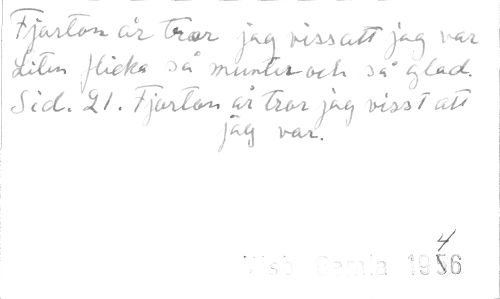 Fjorton år tror jag visst att jag var
Liten flicka så munter och så glad.
Sid. 21. Fjorton år tror jag visst att
jag var.
4
1956